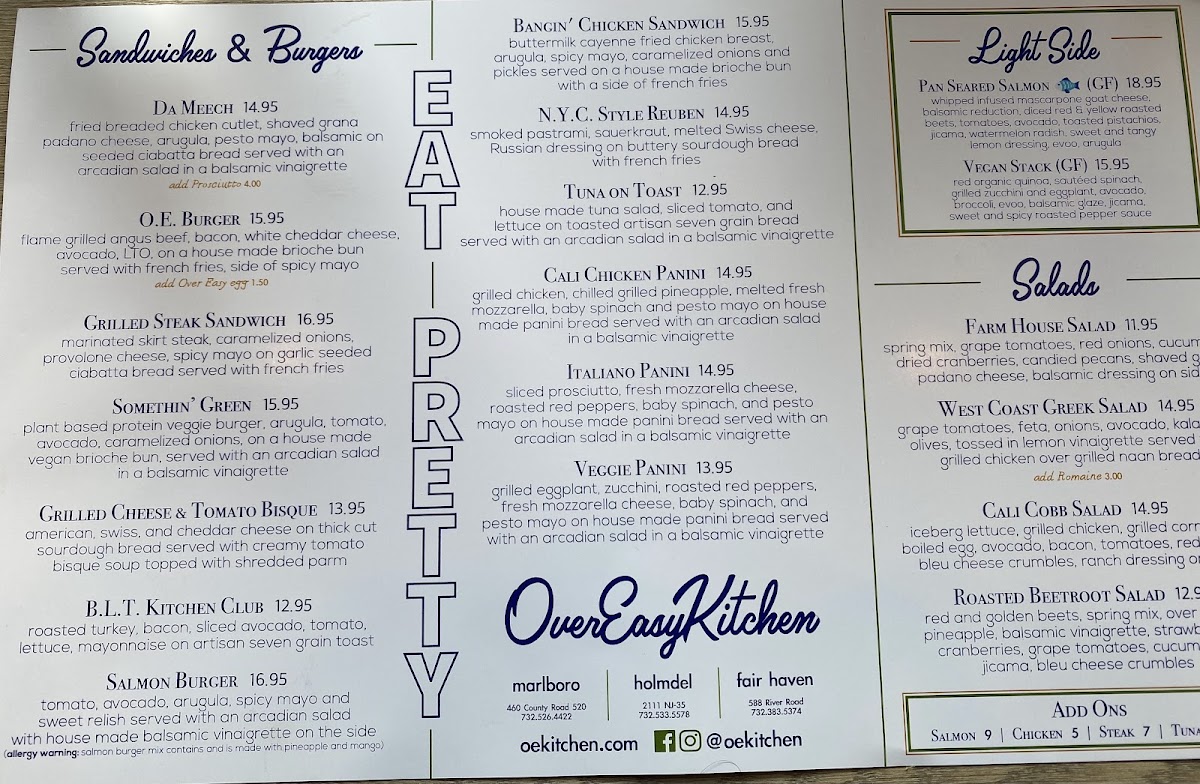 Sandwiches & Burgers
DA MEECH 14.95
fried breaded chicken cutlet, shaved grana
padano cheese, arugula, pesto mayo, balsamic on
seeded ciabatta bread served with an
arcadian salad in a balsamic vinaigrette
add Prosciutto 4.00
O.E. BURGER 15.95
flame grilled angus beef, bacon, white cheddar cheese,
avocado, LTO, on a house made brioche bun
served with french fries, side of spicy mayo
add Over Easy egg 1.50
GRILLED STEAK SANDWICH 16.95
marinated skirt steak, caramelized onions,
provolone cheese, spicy mayo on garlic seeded
ciabatta bread served with french fries
SOMETHIN' GREEN 15.95
plant based protein veggie burger, arugula, tomato,
avocado, caramelized onions, on a house made
vegan brioche bun, served with an arcadian salad
in a balsamic vinaigrette
GRILLED CHEESE & TOMATO BISQUE 13.95
american, swiss, and cheddar cheese on thick cut
sourdough bread served with creamy tomato
bisque soup topped with shredded parm
B.L.T. KITCHEN CLUB 12.95
roasted turkey, bacon, sliced avocado, tomato,
lettuce, mayonnaise on artisan seven grain toast
SALMON BURGER 16.95
tomato, avocado, arugula, spicy mayo and
sweet relish served with an arcadian salad
with house made balsamic vinaigrette on the side
(allergy warning: salmon burger mix contains and is made with pineapple and mango)
EAT PRETTY
BANGIN' CHICKEN SANDWICH 15.95
buttermilk cayenne fried chicken breast,
arugula, spicy mayo, caramelized onions and
pickles served on a house made brioche bun
with a side of french fries
N.Y.C. STYLE REUBEN 14.95
smoked pastrami, sauerkraut, melted Swiss cheese,
Russian dressing on buttery sourdough bread
with french fries
TUNA ON TOAST 12.95
house made tuna salad, sliced tomato, and
lettuce on toasted artisan seven grain bread
served with an arcadian salad in a balsamic vinaigrette
CALI CHICKEN PANINI 14.95
grilled chicken, chilled grilled pineapple, melted fresh
mozzarella, baby spinach and pesto mayo on house
made panini bread served with an arcadian salad
in a balsamic vinaigrette
ITALIANO PANINI 14.95
sliced prosciutto, fresh mozzarella cheese,
roasted red peppers, baby spinach, and pesto
mayo on house made panini bread served with an
arcadian salad in a balsamic vinaigrette
VEGGIE PANINI 13.95
grilled eggplant, zucchini, roasted red peppers,
fresh mozzarella cheese, baby spinach, and
pesto mayo on house made panini bread served
with an arcadian salad in a balsamic vinaigrette
OverEasyKitchen
marlboro
460 County Road 520
732.526.4422
holmdel
2111 NJ-35
732.533.5578
fair haven
588 River Road
732.383.5374
oekitchen.com @oekitchen
Light Side
PAN SEARED SALMON (GF) 18.95
whipped infused mascarpone goat cheese,
balsamic reduction, diced red & yellow roasted
beets, tomatoes, avocado, toasted pistachios,
jicama, watermelon radish, sweet and tangy
lemon dressing, evoo, arugula
VEGAN STACK (GF) 15.95
red organic quinoa, sautéed spinach,
grilled zucchini and eggplant, avocado,
broccoli, evoo, balsamic glaze, jicama,
sweet and spicy roasted pepper sauce
Salads
FARM HOUSE SALAD 11.95
spring mix, grape tomatoes, red onions, cucum
dried cranberries, candied pecans, shaved g
padano cheese, balsamic dressing on sid
WEST COAST GREEK SALAD 14.95
grape tomatoes, feta, onions, avocado, kala
olives, tossed in lemon vinaigrette served
grilled chicken over grilled naan bread
add Romaine 3.00
CALI COBB SALAD 14.95
iceberg lettuce, grilled chicken, grilled corn
boiled egg, avocado, bacon, tomatoes, red
bleu cheese crumbles, ranch dressing o
ROASTED BEETROOT SALAD 12.9
red and golden beets, spring mix, over
pineapple, balsamic vinaigrette, strawb
cranberries, grape tomatoes, cucum
jicama, bleu cheese crumbles
ADD ONS
SALMON 9 | CHICKEN 5 | STEAK 7 | TUNA